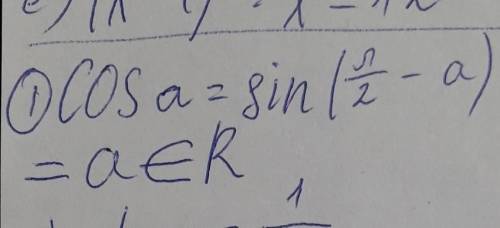 ① cos a = sin(π/2 - a)
= a ∈ R
1